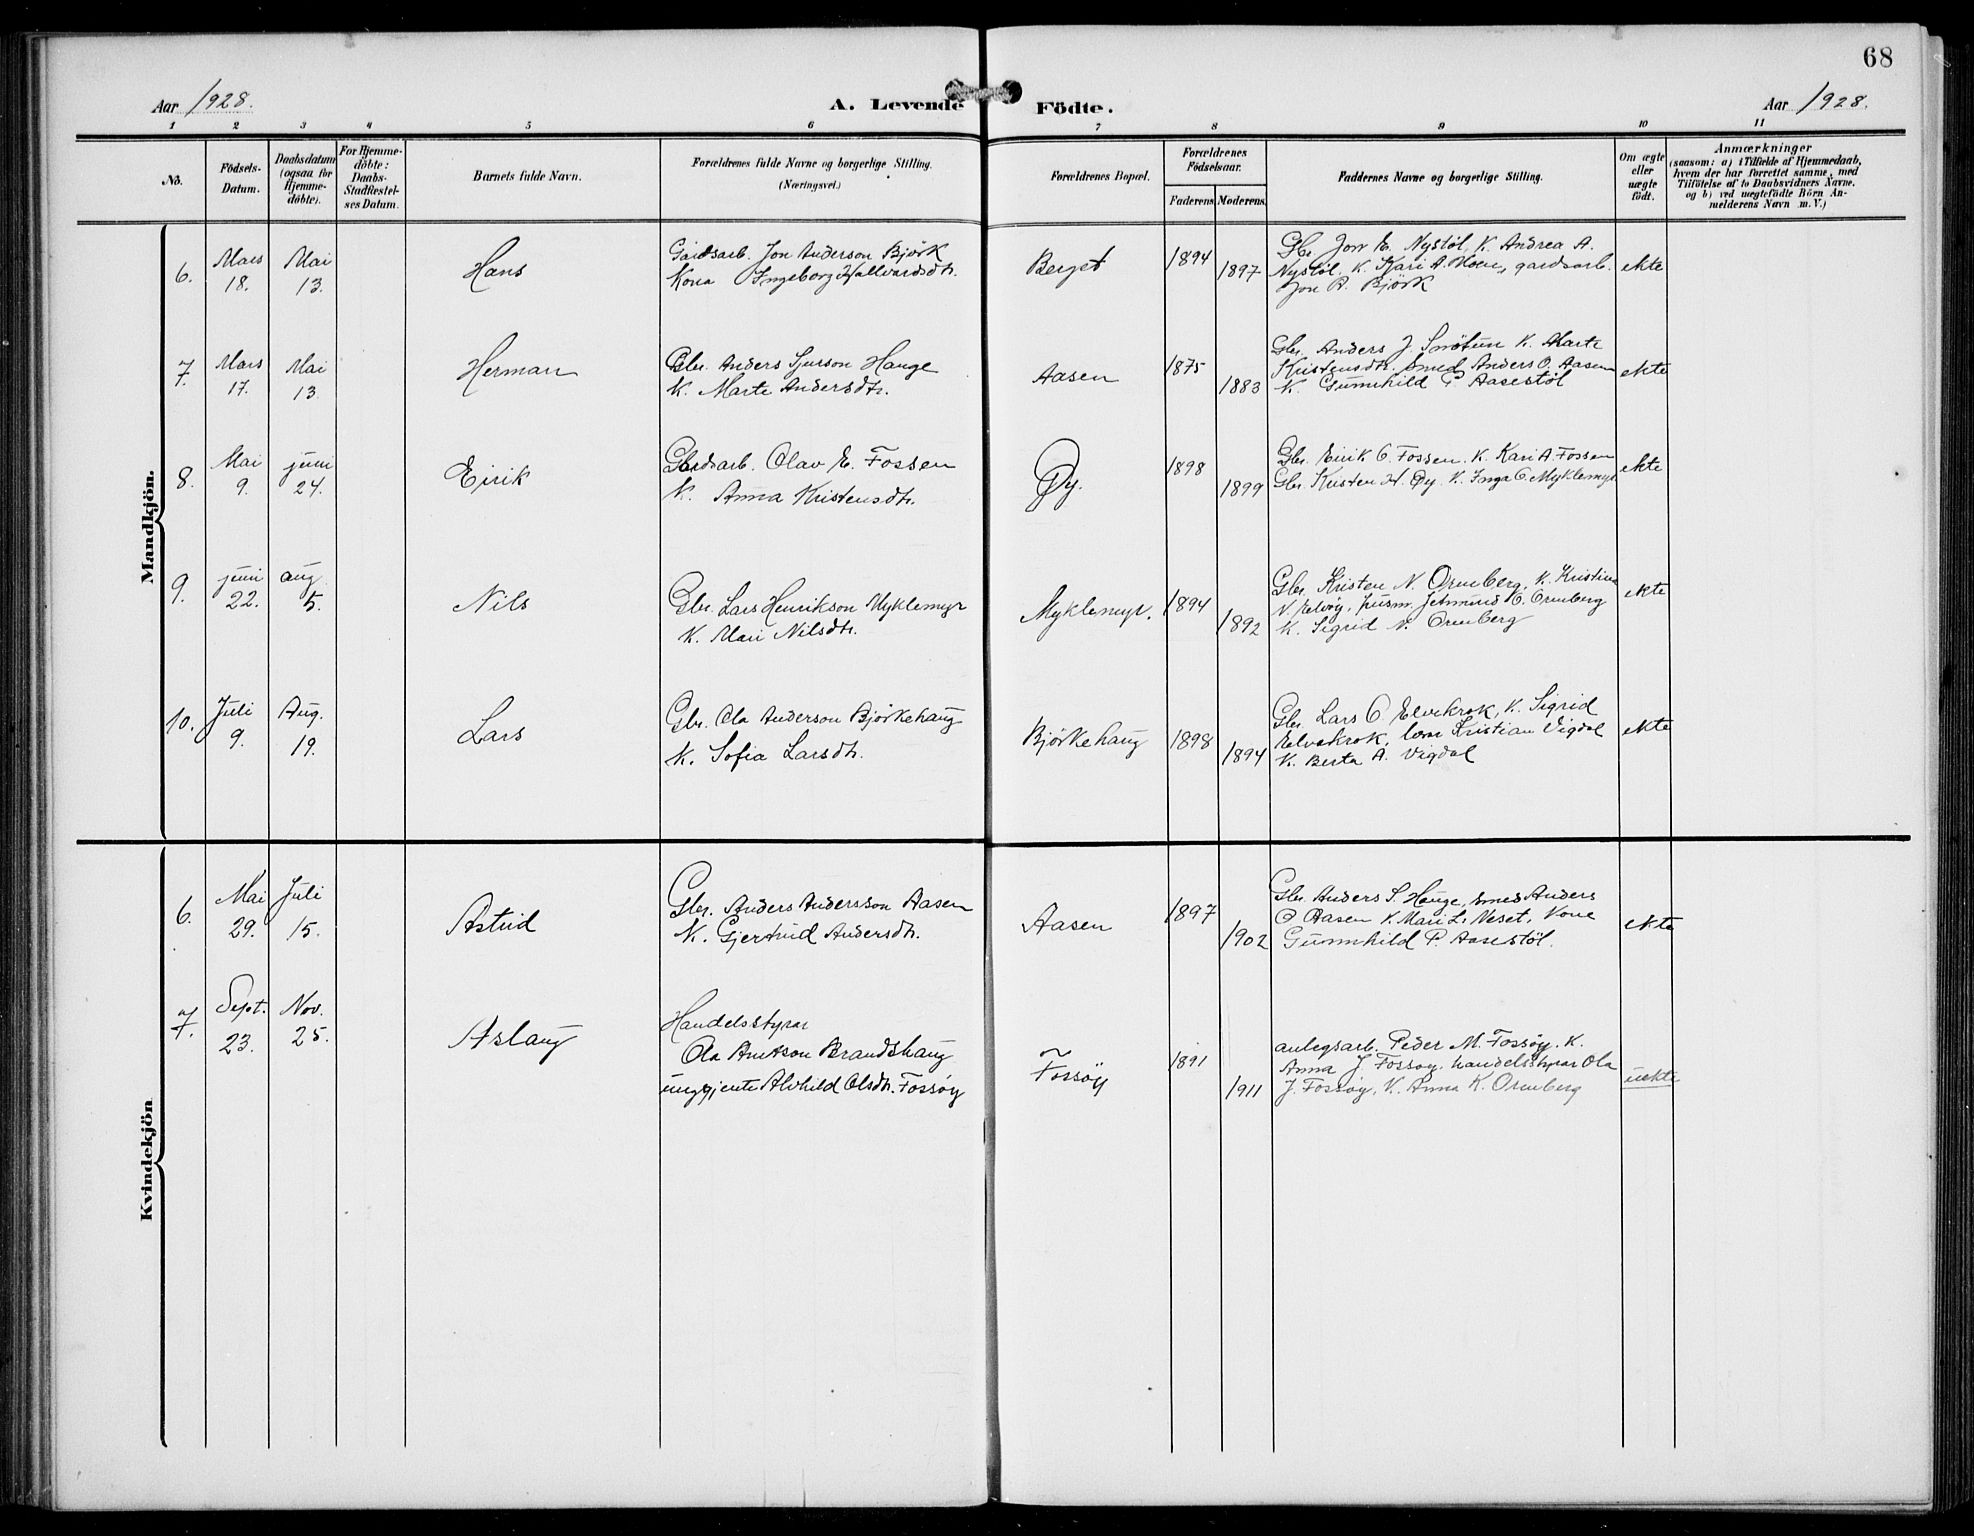 68
Aar 1928.
A. Levende Födte.
Aar 1928.
1 2 3 4 5 6 7 8 9 10 11
No.
Födsels-Datum.
Daabsdatum (ogsaa for Hjemme-döbte).
For Hjemme-döbte: Daabs-Stadfæstel-ses Datum.
Barnets fulde Navn.
Forældrenes fulde Navne og borgerlige Stilling.
(Næringsvei.)
Forældrenes Bopæl.
Forældrenes Födselsaar.
Faderens Moderens
Faddernes Navne og borgerlige Stilling.
Om ægte eller uægte födt.
Anmærkninger
(saasom: a) i Tilfælde af Hjemmedaab,
hvem der har forrettet samme, med
Tilföielse af to Daabsvidners Navne.
og b) ved uægtefödte Börn An-
melderens Navn m. V.)
Mandkjön.
6. Mars 18. Mai 13. Hans
Gardsarb. Jon Anderson Björk
Kona Ingeborg Hallvardsdtr.
Berget 1894 1897
Gbr. Jon E. Nystöl, K. Andrea A.
Nystöl, K. Kari A. Moen, gardsarb.
Jon A. Björk
ekte
7. Mars 17. Mai 13. Herman
Gbr. Anders Sjurson Hauge
K. Marte Andersdtr.
Aasen 1875 1883
Gbr. Anders J. Snötun K. Marte
Kristensdtr. Smed Anders O. Aasen
K. Gunnhild P. Aasestöl
ekte
8. Mai 9. juni 24. Eirik
Gardsarb. Olav E. Fossen
K. Anna Kristensdtr.
Øy. 1898 1899
Gbr. Eirik O. Fossen. K. Kari A. Fossen
Gbr. Kristen H. Øy. K. Inga O. Myklemyr
ekte
9. juni 22. aug. 5. Nils
Gbr. Lars Henrikson Myklemyr
K. Mari Nilsdtr.
Myklemyr. 1894 1892
Gbr. Kristen N. Ormberg, K. Kristina
N. Elvøy, pusm. Jetmund K. Ormberg
K. Sigrid N. Ormberg
ekte
10. Juli 9. Aug. 19. Lars
Gbr. Ola Anderson Bjørkehaug
K. Sofia Larsdtr.
Bjørkehaug 1898 1894
Gbr. Lars O. Elvekrok, K. Sigrid
Elvekrok, Kristian Vigdal
K. Berta A. Vigdal
ekte
Kvindekjön
6. Mai 29. Juli 15. Astrid
Gbr. Anders Andersson Aasen
K. Gjertrud Andersdtr.
Aasen 1897 1902
Gbr. Anders S. Hauge, smed Anders
O. Aasen K. Mari L. Neset, Kone
Gunnhild P. Aasestöl.
ekte
7. Sept. 23. Nov. 25. Aslaug
Handelsstyrar
Ola Knutson Brandshaug
unggjente Alvhild Olsdtr. Fossøy
Fossøy 1891 1911
anlegsarb. Peder M. Fossøy. K.
Anna J. Fossøy. handelsstyrar Ola
J. Fossøy, K. Anna K. Ormberg
uekte